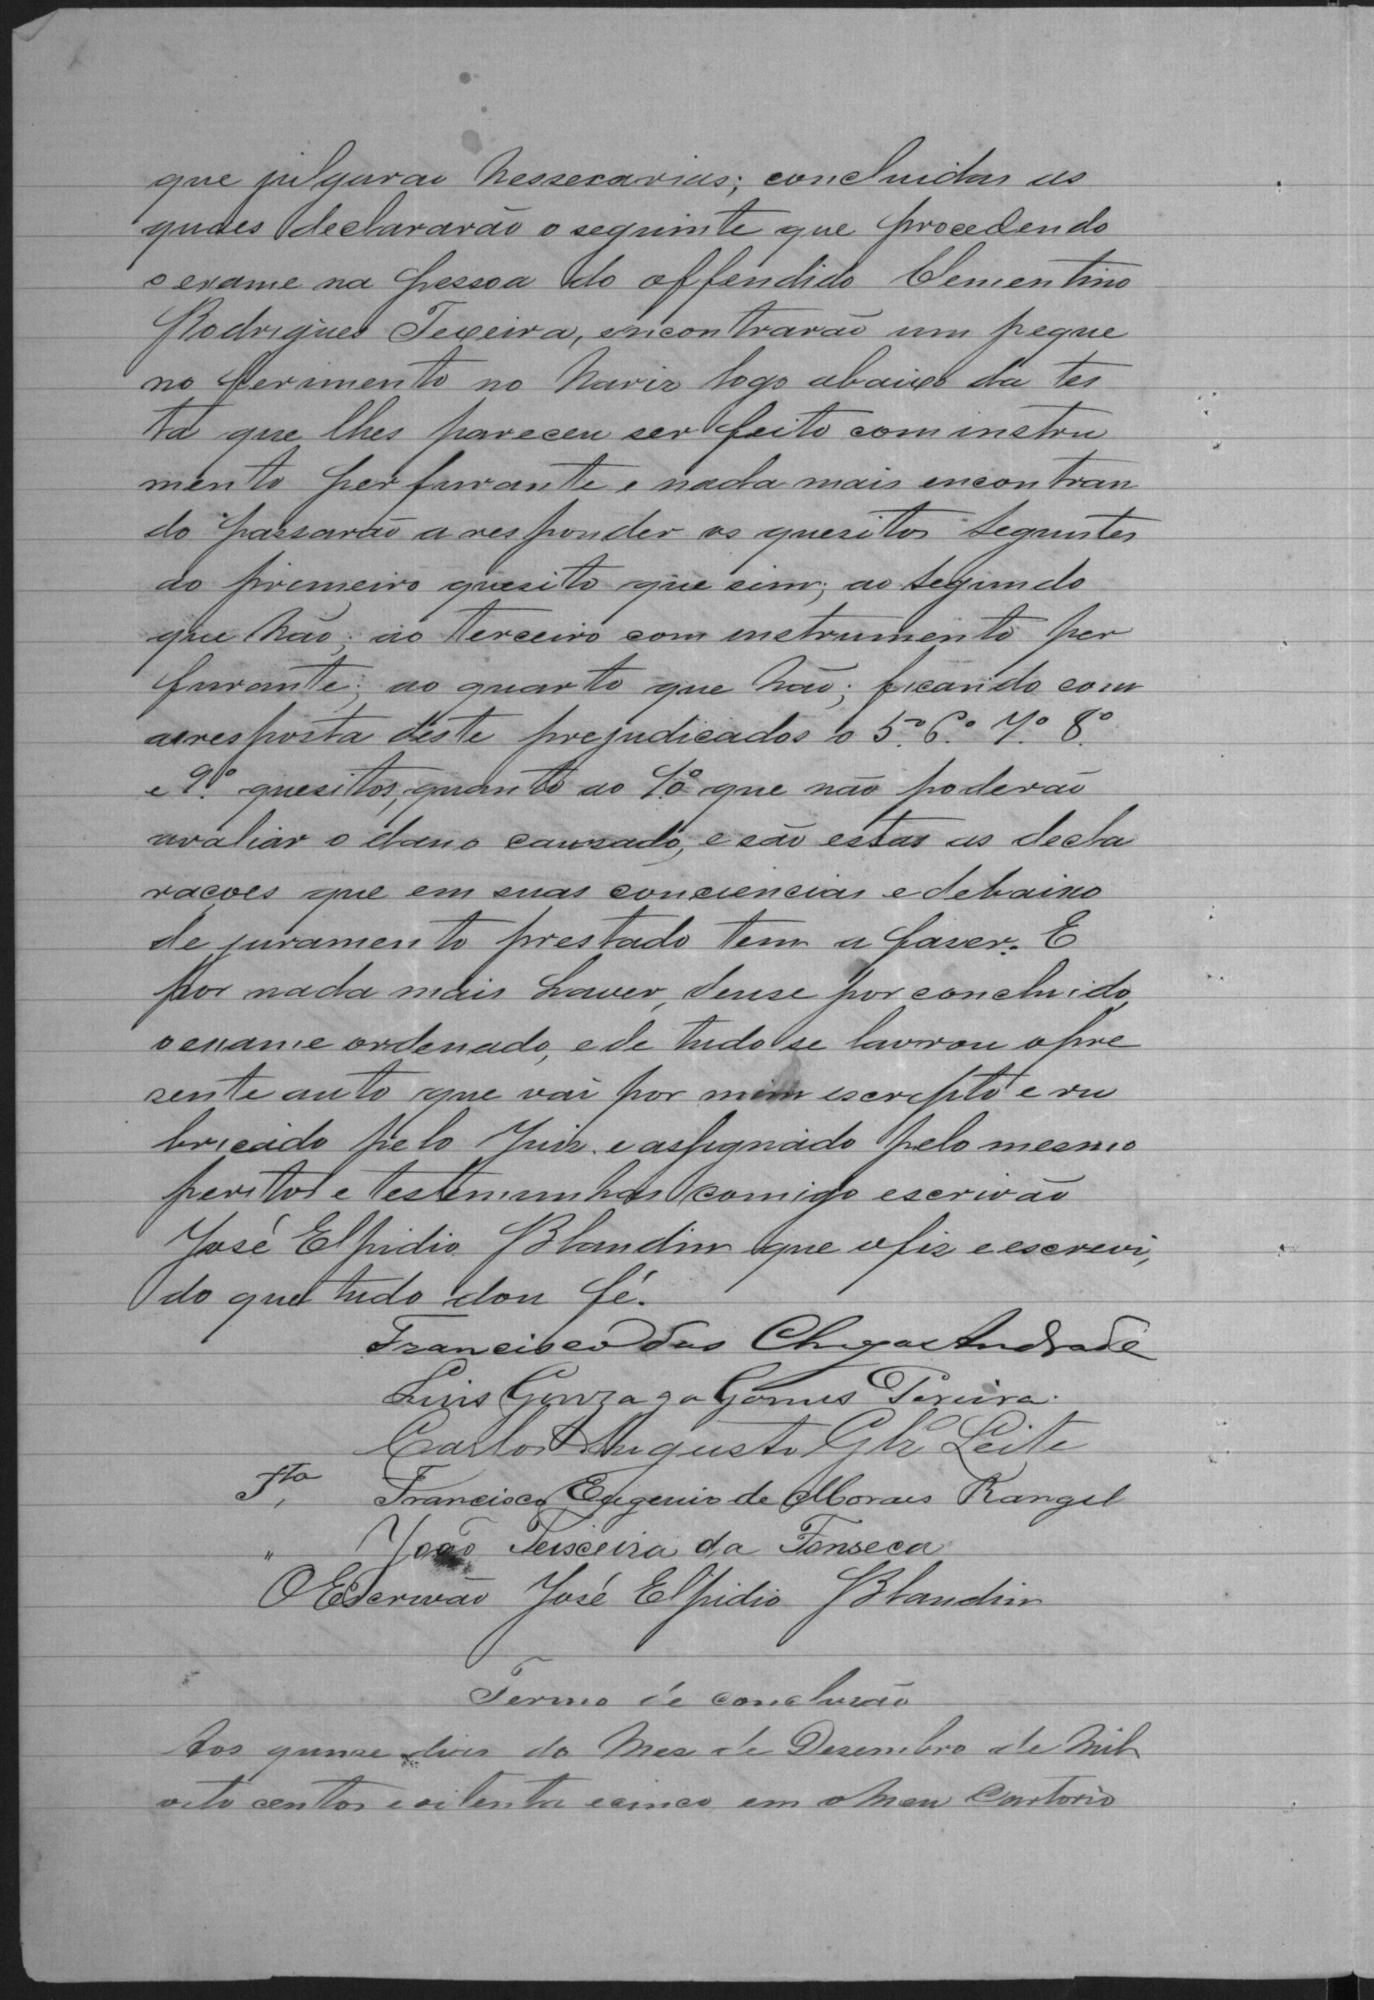 que julgarão Nessecarias; concluidas as
quaes declararão o seguinte que procedendo
o exame na pessoa do offendido Clementino
Rodrigues Texeira, encontrarão um peque
no ferimento no Nariz logo abaixo da tes
ta que lhes pareceu ser feito com instru
mento perfurante e nada mais encontran
do passarão a responder os quesitos seguintes
ao primeiro quesito que sim; ao segundo
que Não; ao terceiro com instrumento per
furante; ao quarto que Não; ficando com
a resposta deste prejudicados o 5º. 6º. 7º. 8º.
e 9º. quesitos, quanto ao 10º que não poderão
avaliar o dano causado, e são estas as decla
racoes que em suas conciencias e debaixo
de juramento prestado tem a faser. E
por nada mais haver, deuse por concluido
o exame ordenado, e de tudo se lavrou o pre
sente auto que vai por mim escripto e ru
bricado pelo Juiz e assignado pelo mesmo
peritos e testemunhas comigo escrivão
José Elpidio Blandin que o fiz e escrevi,
do que tudo dou fé.
Francisco das Chagas Andrade
Luis Gonzaga Gomes Pereira.
Carlos Augusto Glz Leite
Tta. Francisco Eugenio de Moraes Rangel
" João Teixeira da Fonseca
O Escrivão José Elpidio Blandin
Termo de conclusão
Aos quinse dias do Mez de Desembro de Mil
oito centos e oitenta e cinco em o Meu Cartorio